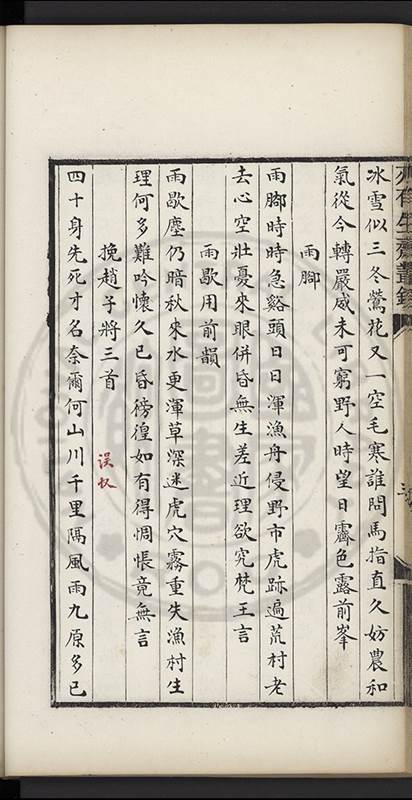 冰雪似三冬鶯花又一空毛寒誰問馬指直久妨農和
氣從今轉嚴威未可窮野人時望日霽色露前峯
雨腳
雨腳時時急谿頭日日渾漁舟侵野市虎跡遍荒村老
去心空壯憂來眼併昏無生差近理欲究梵王言
雨歇用前韻
雨歇塵仍暗秋來水更渾草深迷虎穴霧重失漁村生
理何多難吟懷久已昏徬徨如有得惆悵竟無言
挽趙子將三首
誤收
四十身先死才名奈爾何山川千里隔風雨九原多已